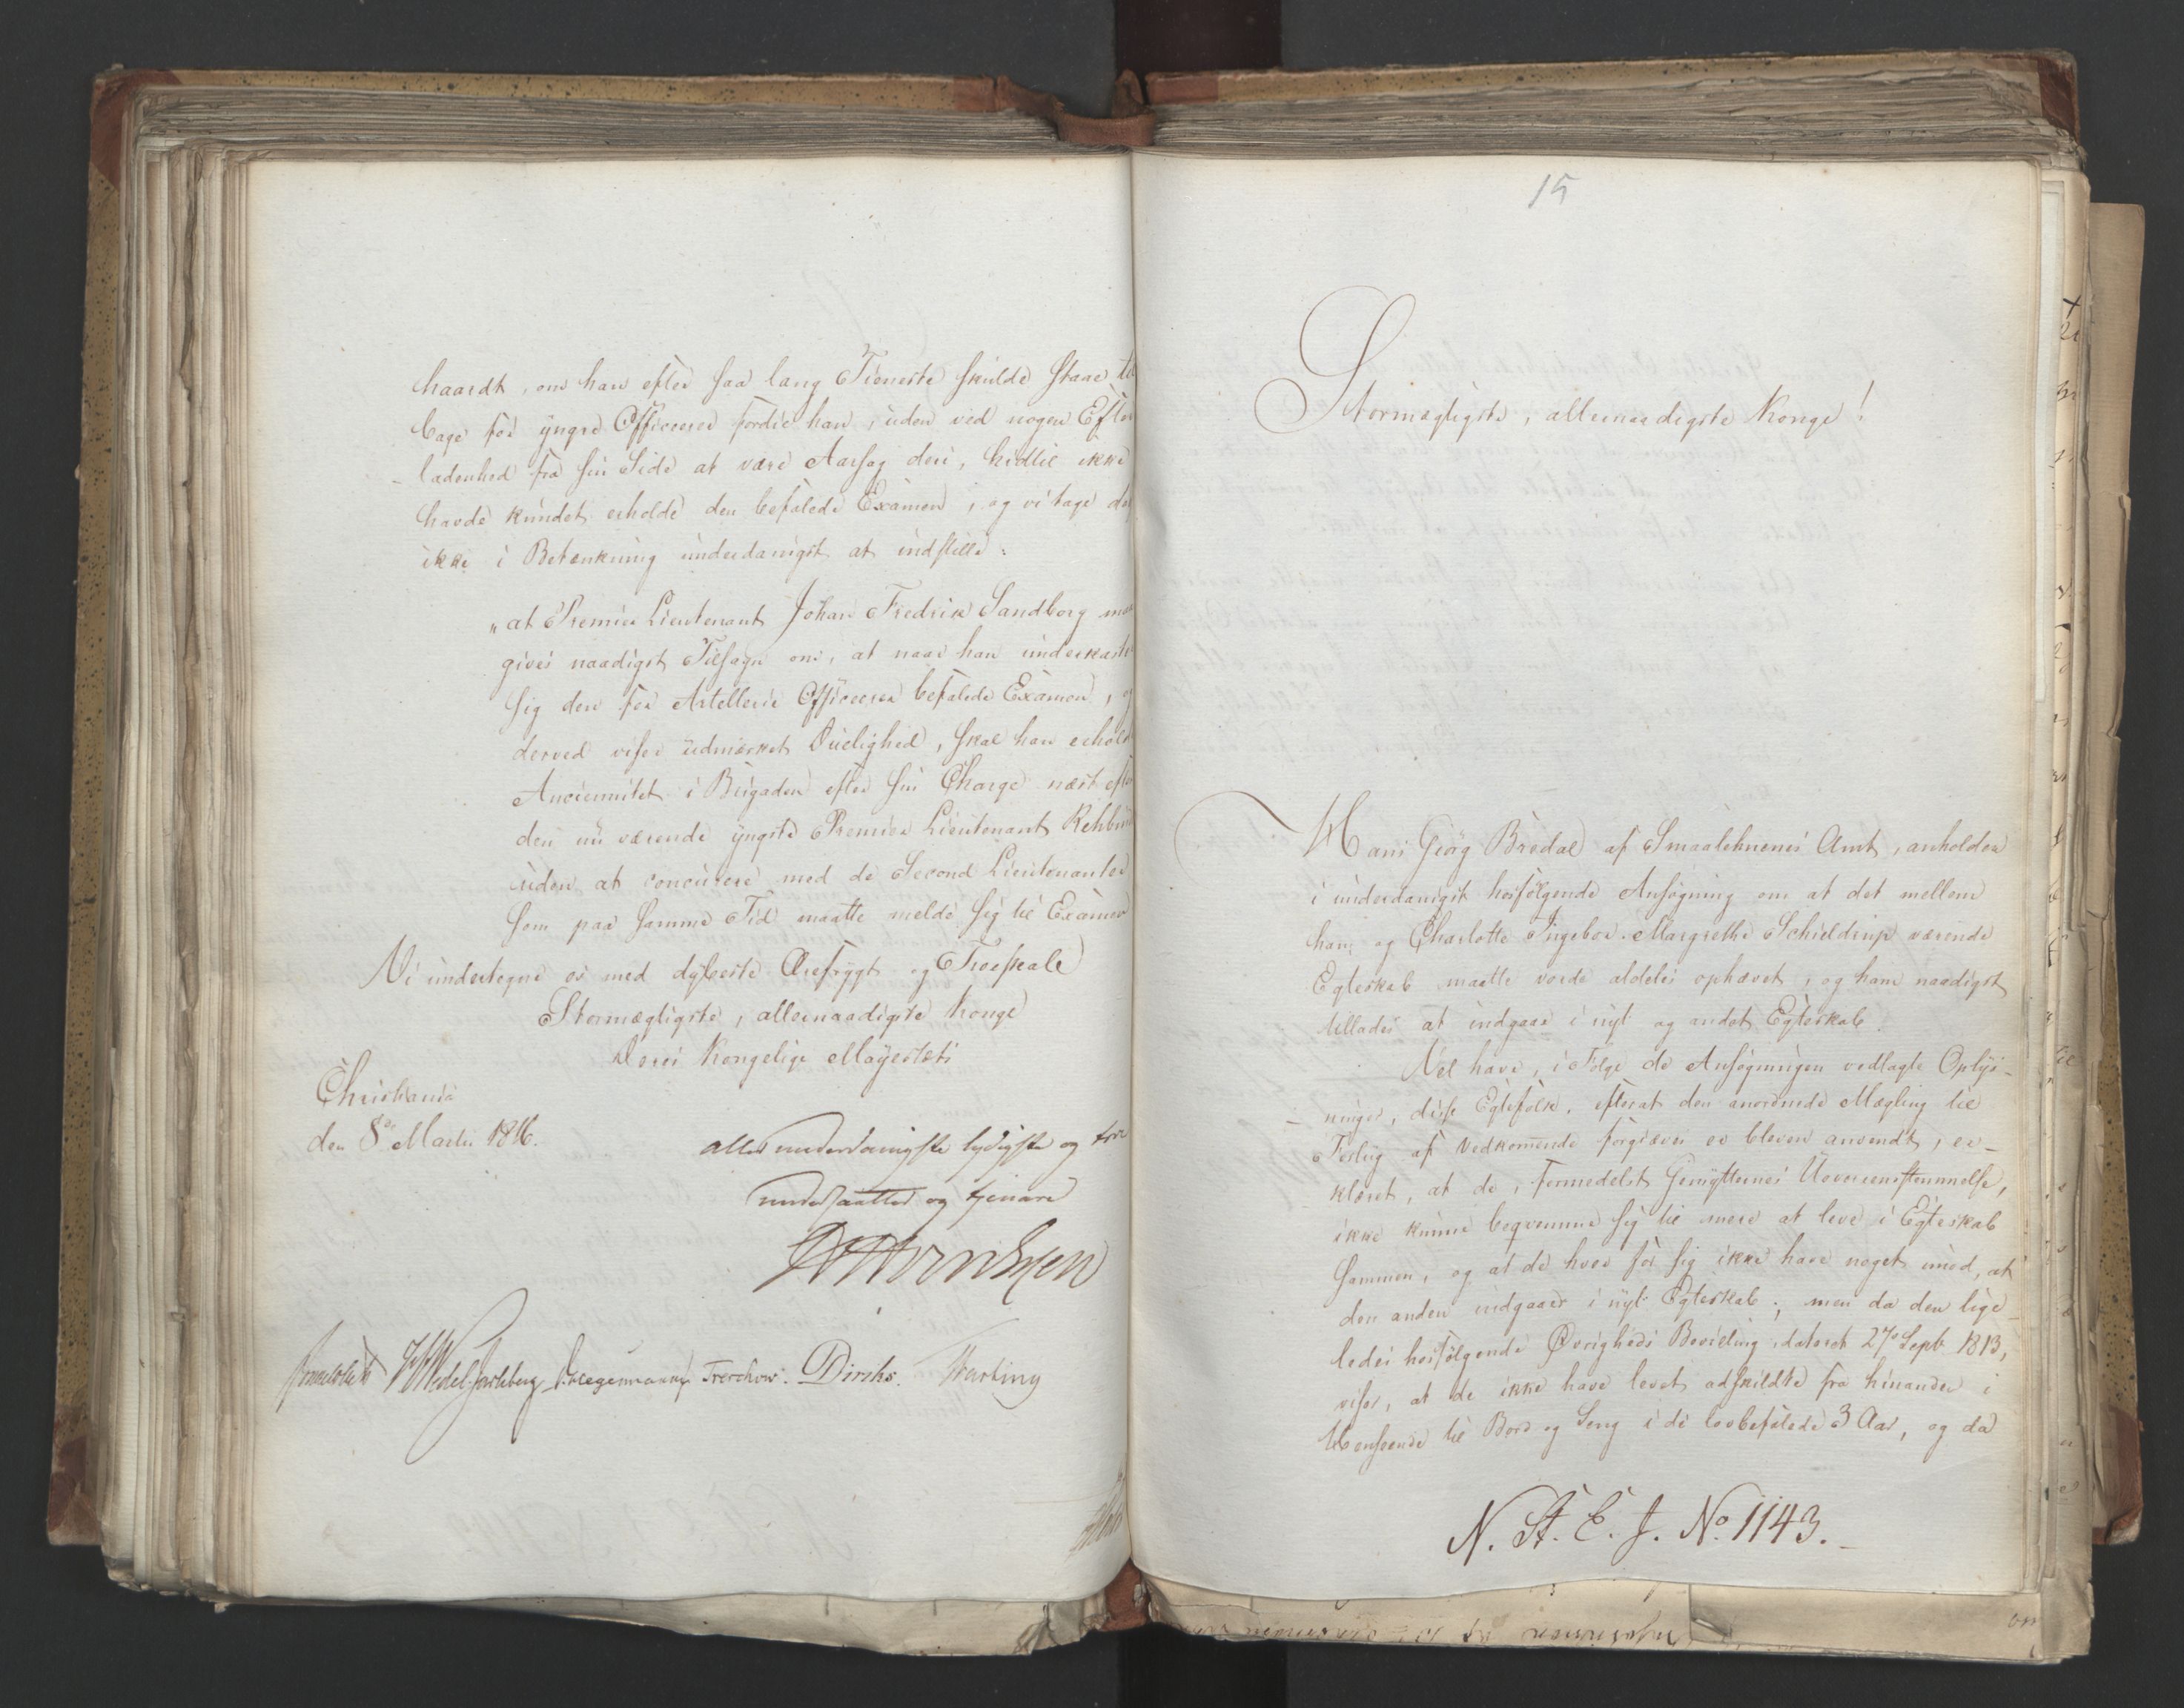 haardt, om han efter saa lang Tieneste skulde staae til
bage for yngre Officerer fordie han, uden ved nogen Efter
ladenhed fra sin Side at være Aarsag deri, hidtil ikke
havde kundet erholde den befalede Examen, og vi tage der
ikke i Betænkning underdanigst at indstille:
„at Premier Lieutenant Johan Fredrik Sandborg maa
gives naadigst Tilsagn om, at naar han underkaster
sig den for Artillerie Officerer befalede Examen, og
derved viser udmærket Duelighed, skal han erholde
Anciennitet i Brigaden efter sin Charge næst efter
den nu værende yngste Premier Lieutenant Rehbin
uden at concurere med de Second Lieutenanter
som paa samme Tid maatte melde sig til Examen
Vi undertegne os med dybeste Ærefrygt og Troeskab
Stormægtigste, allernaadigste Konge
Deres Kongelige Mayestæts
Christiania
den 8de Martii 1816.
allerunderdanigste lydigste og troe
undersaatter og tjenere
Wedel Jarlsberg Hegermann Treschow. Diriks. Motzfeldt
15
Stormægtigste, allernaadigste Konge!
Hans Giørg Bredal af Smaalehnenes Amt, anholder
i underdanigst hosfølgende Ansøgning om at det mellem
ham og Charlotte Ingebor. Margrethe Schieldrup værende
Egteskab maatte vorde aldeles ophævet, og ham naadigst
tillades at indgaae i nyt og andet Egteskab.
Vel have, i Følge de Ansøgningen vedlagte Oplys-
ninger, disse Egtefolk, efterat den anordnede Mægling til
Forlig af Vedkommende forgieves er bleven anvendt, er-
klæret, at de, formedelst Gemytternes Uoverensstemmelse,
ikke kunne beqvemme sig til mere at leve i Egteskab
sammen, og at de hver for sig ikke have noget imod, at
den anden indgaaer i nyt Egteskab; men da den lige
ledes hosfølgende Øvrigheds Bevilling, dateret 27de Septb. 1813,
viser, at de ikke have levet adskildte fra hinanden i
Henseende til Bord og Seng i de lovbefalede 3 Aar, og da
N. St. E. J. No. 1143.